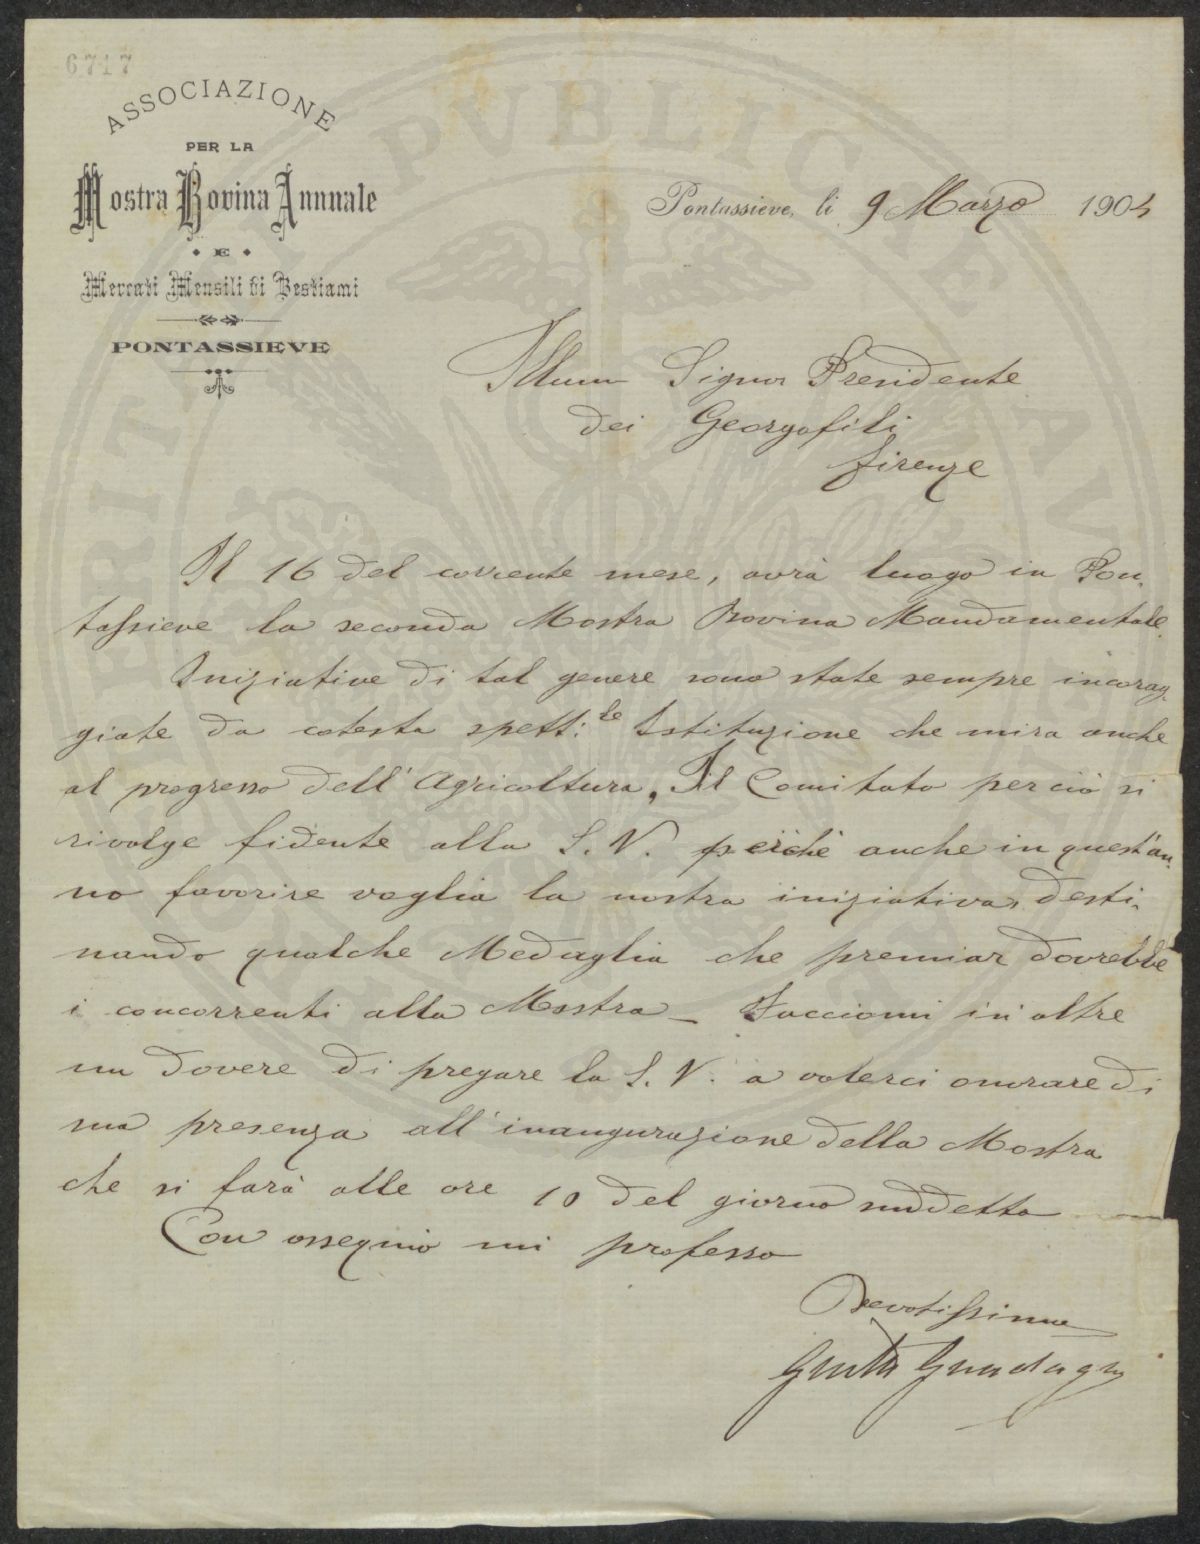 6717
ASSOCIAZIONE
PER LA
Mostra Bovina Annuale
E
Mercati Mensili di Bestiami
PONTASSIEVE
Pontassieve, li 9 Marzo 1904
Illmo Signor Presidente
dei Georgofili
Firenze
Il 16 del corrente mese, avrà luogo in Pon-
tassieve la seconda Mostra Bovina Mandamentale.
Iniziative di tal genere sono state sempre incorag-
giate da cotesta spett:le Istituzione che mira anche
al progresso dell'Agricoltura. Il Comitato perciò si
rivolge fidente alla S.V. perchè anche in quest'an-
no favorire voglia la nostra iniziativa, desti-
nando qualche Medaglia che premiar dovrebbe
i concorrenti alla Mostra_ Facciomi in oltre
un dovere di pregare la S.V. a volerci onorare di
sua presenza all'inaugurazione della Mostra
che si farà alle ore 10 del giorno suddetto
Con ossequio mi professo
Devotissimo
Guadagni
PUBLICE